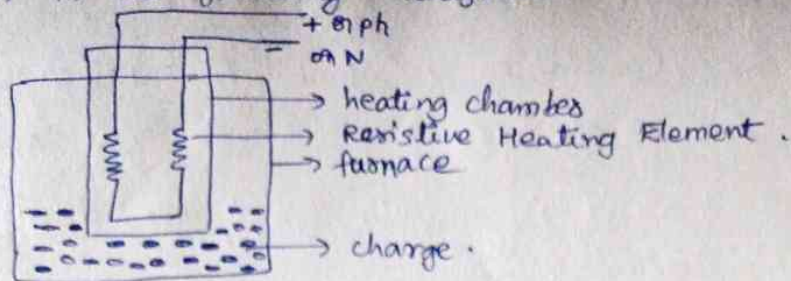 + or ph
- or N
heating chamber
Resistive Heating Element.
furnace
charge.